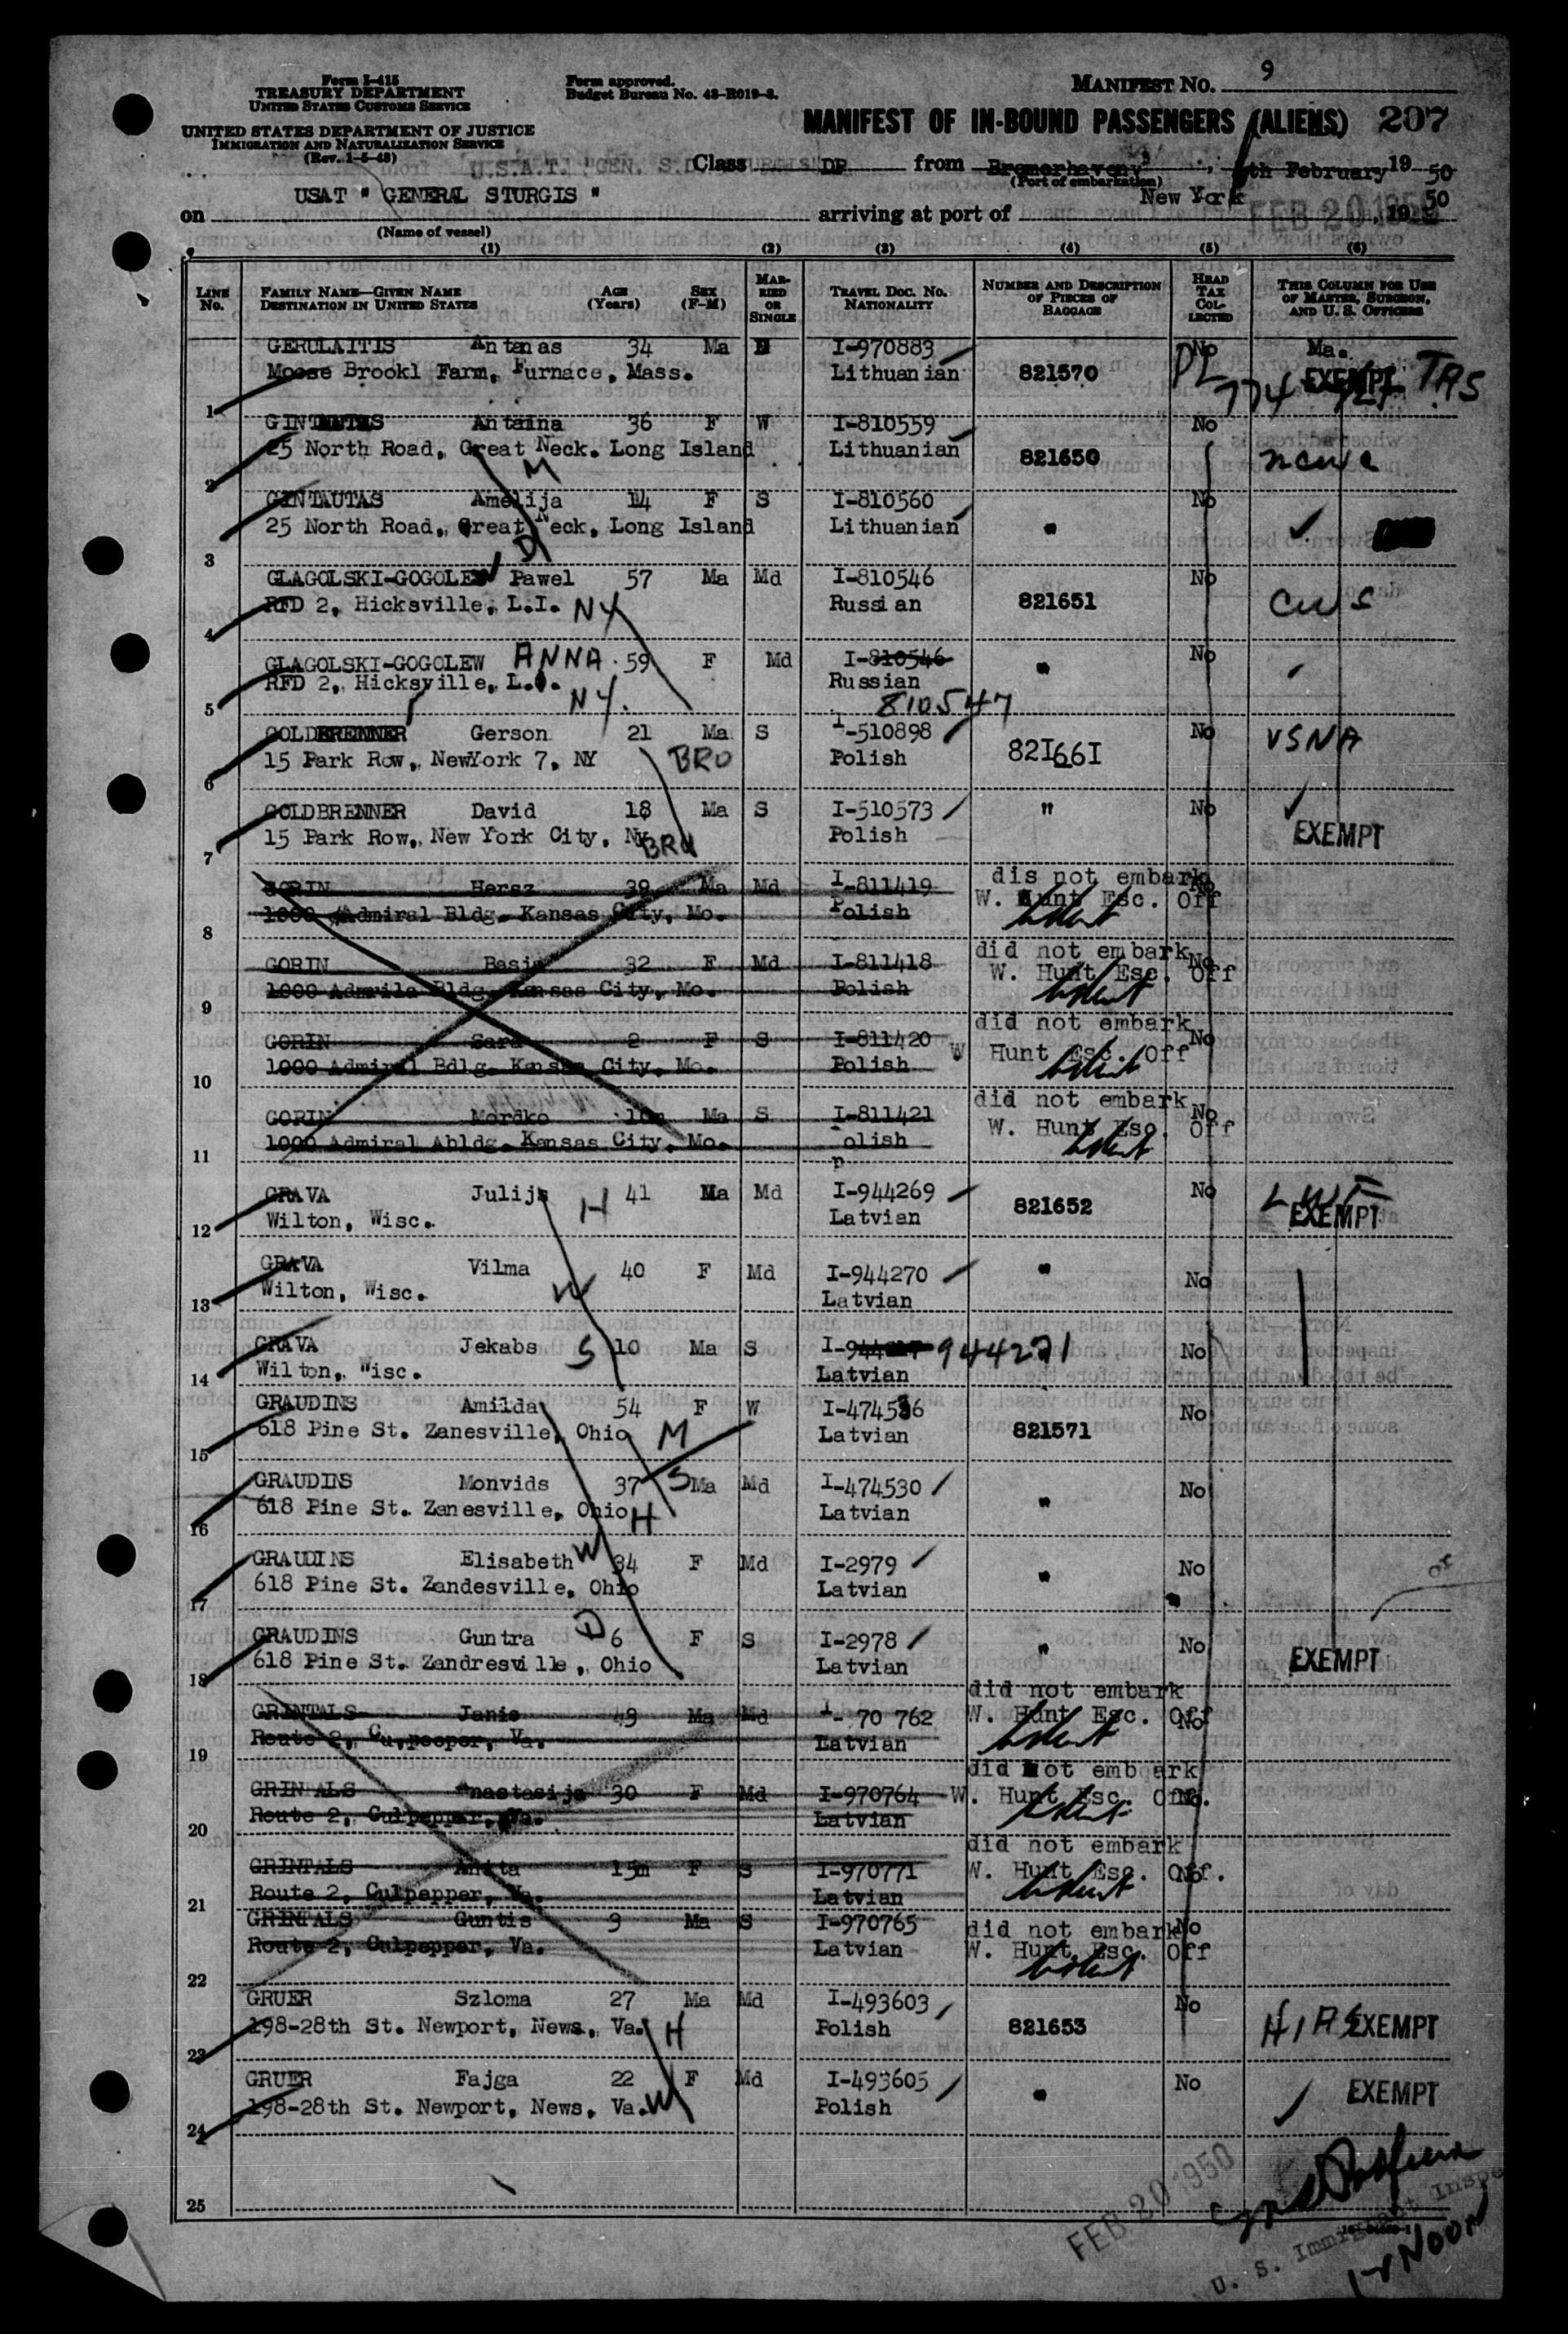 Form I-415
TREASURY DEPARTMENT
UNITED STATES CUSTOMS SERVICE
UNITED STATES DEPARTMENT OF JUSTICE
IMMIGRATION AND NATURALIZATION SERVICE
(Rev. 1-5-48)
Form approved.
Budget Bureau No. 43-R019-3.
MANIFEST NO. 9
MANIFEST OF IN-BOUND PASSENGERS (ALIENS) 207
Class DP from Bremerhaven, th February 19 50
(Port of embarkation)
on USAT " GENERAL STURGIS " arriving at port of New York FEB 20 1950, 19 50
(Name of vessel)
(1) (2) (3) (4) (5) (6)
LINE No. FAMILY NAME—GIVEN NAME DESTINATION IN UNITED STATES AGE (Years) SEX (F-M) MARRIED OR SINGLE TRAVEL DOC. NO. NATIONALITY NUMBER AND DESCRIPTION OF PIECES OF BAGGAGE HEAD TAX COLLECTED THIS COLUMN FOR USE OF MASTER, SURGEON, AND U. S. OFFICERS
GERULAITIS Antanas 34 Ma I-970883 No Ma.
Moose Brookl Farm, Furnace, Mass. Lithuanian 821570 EXEMPT
1
Antaina 36 F W I-810559 No
25 North Road, Great Neck. Long Island M Lithuanian 821650
2
GINTAUTAS Amelija 14 F S I-810560 No
25 North Road, Great Neck, Long Island D Lithuanian "
3
GLAGOLSKI-GOGOLEW Pawel 57 Ma Md I-810546 No
RFD 2, Hicksville, L.I. NY Russian 821651 CWS
4
GLAGOLSKI-GOGOLEW ANNA 59 F Md I-810546 No
RFD 2, Hicksville, L.I. NY. Russian "
5 810547
GOLDBRENNER Gerson 21 Ma S I-510898 No VSNA
15 Park Row, NewYork 7, NY BRO Polish 821661
6
GOLDBRENNER David 18 Ma S I-510573 " No
15 Park Row, New York City, Ny BRO Polish EXEMPT
7
GORIN Hersz 39 Ma Md I-811419 dis not embark No
1000 Admiral Bldg. Kansas City, Mo. Polish W. Hunt Esc. Off
8
GORIN Basia 32 F Md I-811418 did not embark No
1000 Admrila Bldg. Kansas City, Mo. Polish W. Hunt Esc. Off
9
GORIN Sara 2 F S I-811420 did not embark No
1000 Admiral Bdlg. Kansas City, Mo. Polish W Hunt Esc. Off
10
GORIN Mordko 10m Ma S I-811421 did not embark No
1000 Admiral Abldg. Kansas City, Mo. Polish W. Hunt Esc. Off
11
GRAVA Julijs H 41 Ma Md I-944269 No LWF
Wilton, Wisc. Latvian 821652 EXEMPT
12
GRAVA Vilma 40 F Md I-944270 " No
Wilton, Wisc. W Latvian
13
GRAVA Jekabs S 10 Ma S I- 944271 No
Wilton, Wisc. Latvian
14
GRAUDINS Amilda 54 F W I-474536 No
618 Pine St. Zanesville, Ohio M Latvian 821571
15
GRAUDINS Monvids 37 S Ma Md I-474530 No
618 Pine St. Zanesville, Ohio H Latvian "
16
GRAUDINS Elisabeth W 34 F Md I-2979 No
618 Pine St. Zandesville, Ohio Latvian "
17
GRAUDINS Guntra D 6 F S I-2978 No
618 Pine St. Zandresville, Ohio Latvian " EXEMPT
18
GRINTALS Janis 49 Ma Md I- 70 762 did not embark No
Route 2, Cu,peeper, Va. Latvian W. Hunt Esc. Off
19
GRINTALS Anastasija 30 F Md I-970764 did not embark No
Route 2, Culpepper, Va. Latvian W. Hunt Esc. Off.
20
GRINTALS Anita 15m F S I-970771 did not embark No
Route 2, Culpepper, Va. Latvian W. Hunt Esc. Off.
21
GRINTALS Guntis 9 Ma S I-970765 did not embark No
Route 2, Culpepper, Va. Latvian W. Hunt Esc. Off
22
GRUER Szloma 27 Ma Md I-493603 No
198-28th St. Newport, News, Va. H Polish 821653 HIAS EXEMPT
23
GRUER Fajga 22 F Md I-493605 No
198-28th St. Newport, News, Va. W Polish " EXEMPT
24
25
FEB 20 1950
U. S. Immigrant Inspe
12 NOON